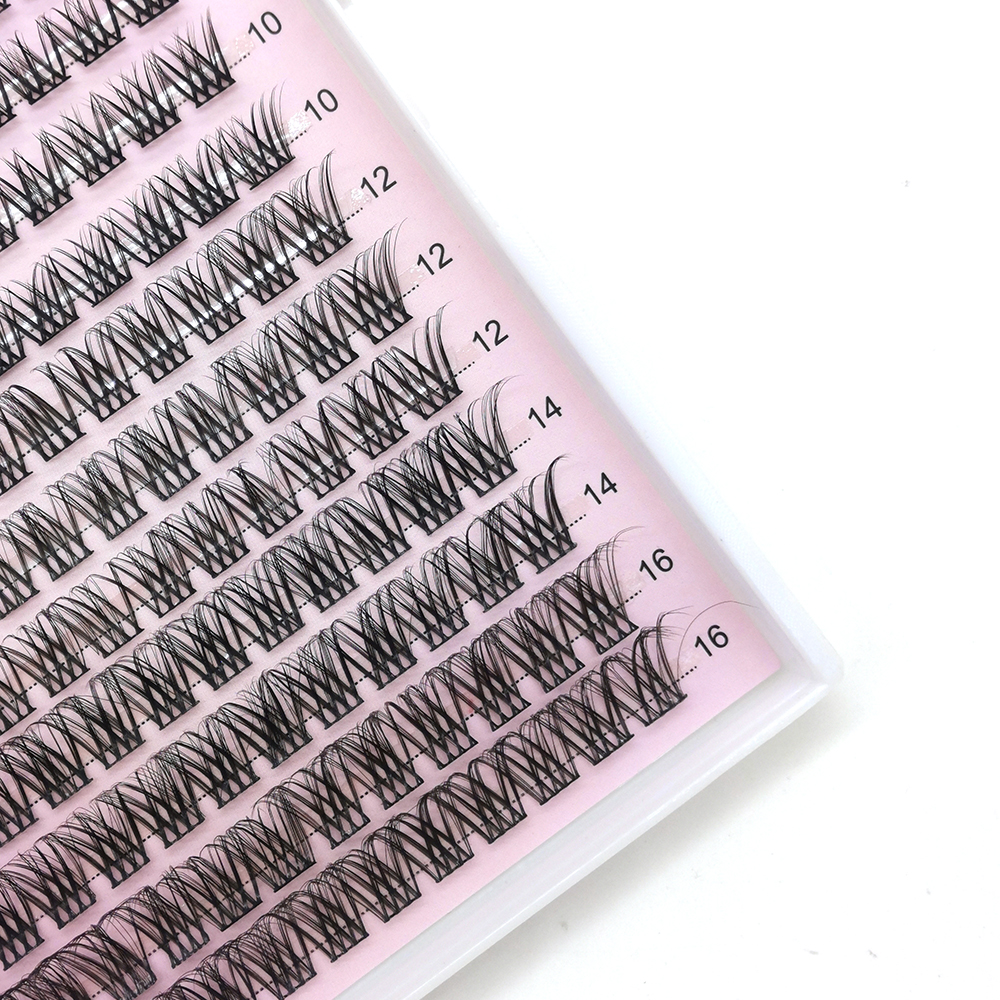 10
10
12
12
12
14
14
16
16